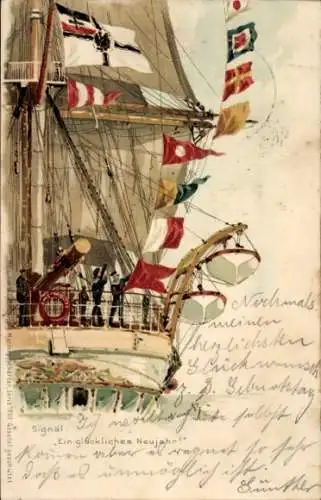 Nochmals
meinen
herzlichsten
Glückwunsch
z. D. Geburtstag
Signal
"Ein glückliches Neujahr!"
Ich wollte selbst
kommen aber es regnet so sehr
daß es unmöglich ist.
Günther